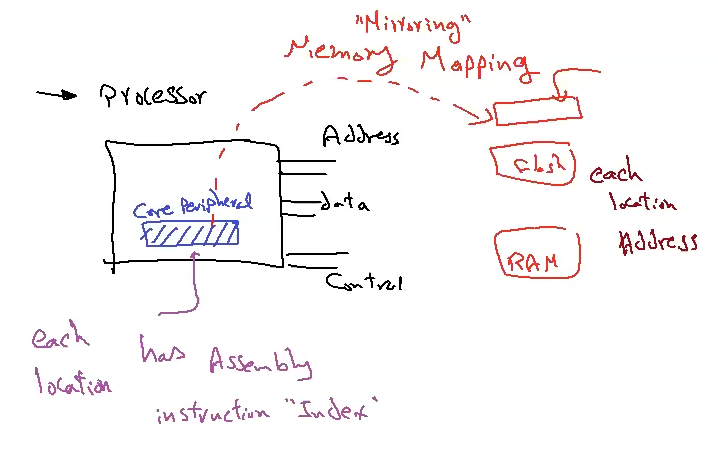 "Mirroring"
Memory Mapping
Processor
Address
Core Peripheral
data
Control
Flash
RAM
each
location
Address
each has Assembly
location
instruction "Index"